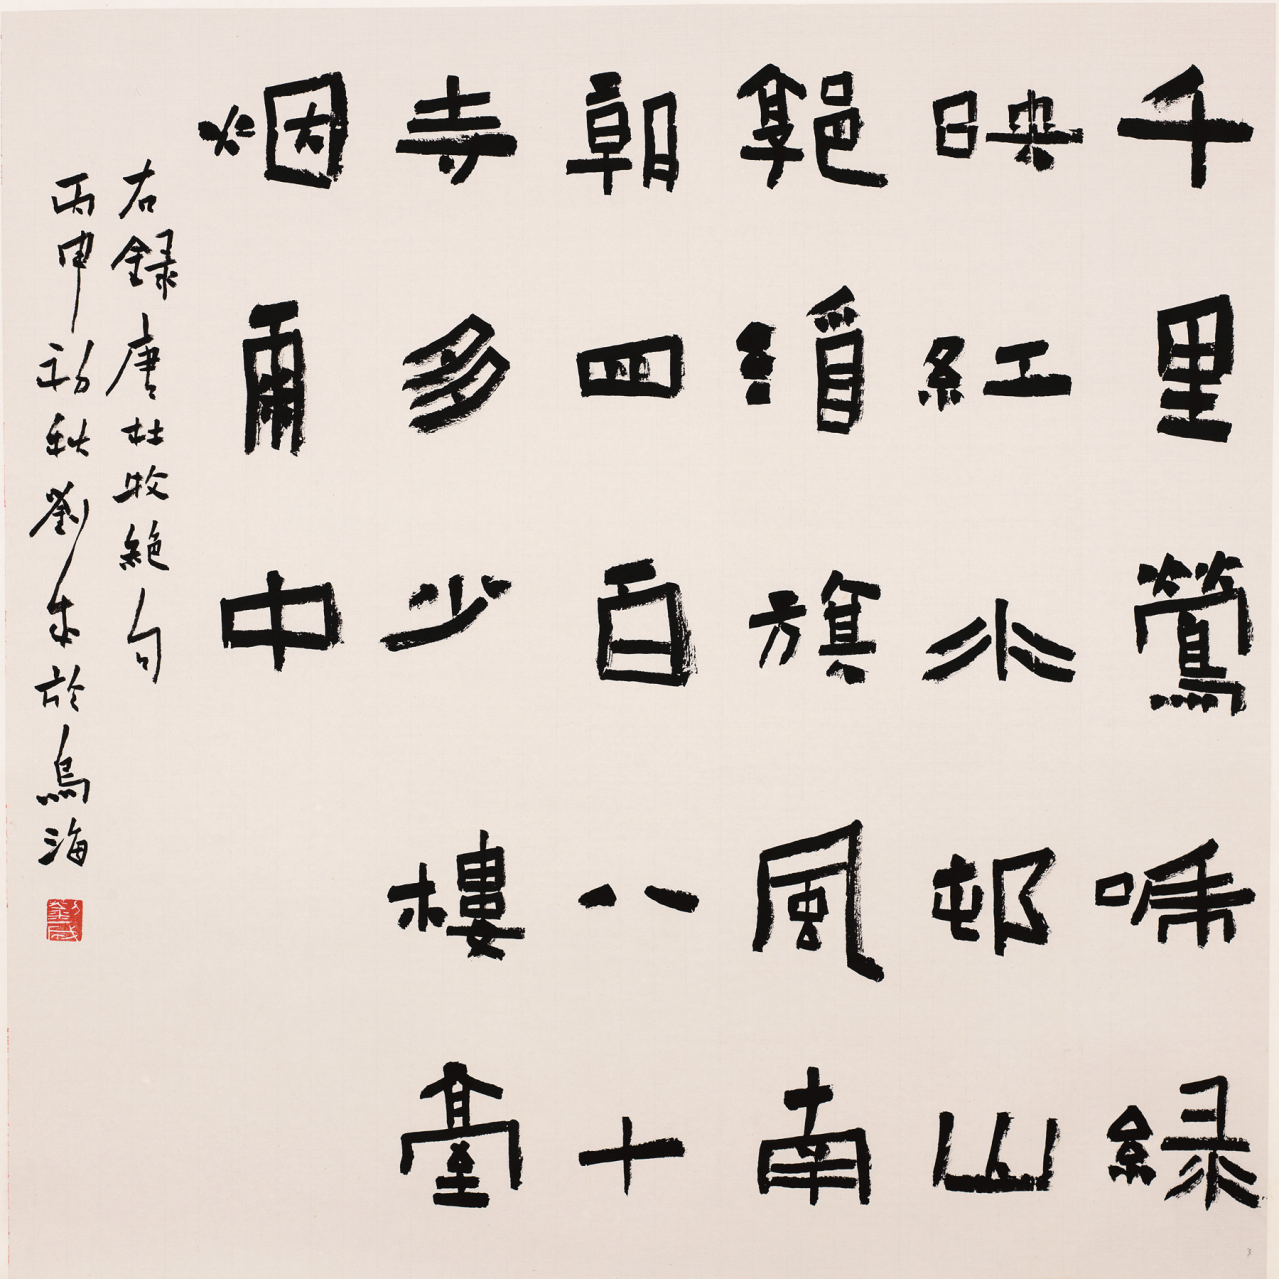 千里鶯啼緑
映紅水邨山
郭酒旗風南
朝四百八十
寺多少樓臺
烟雨中
右録唐杜牧絕句
丙申初秋劉成於烏海